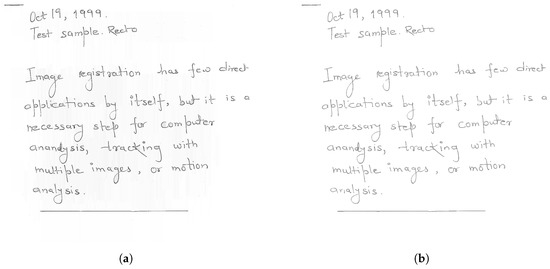 Oct 19, 1999.
Test sample. Recto
Image registration has few direct
applications by itself, but it is a
necessary step for computer
anandysis, tracking with
multiple images, or motion
analysis.
(a)
Oct 19, 1999.
Test sample. Recto
Image registration has few direct
applications by itself, but it is a
necessary step for computer
anandysis, tracking with
multiple images, or motion
analysis.
(b)